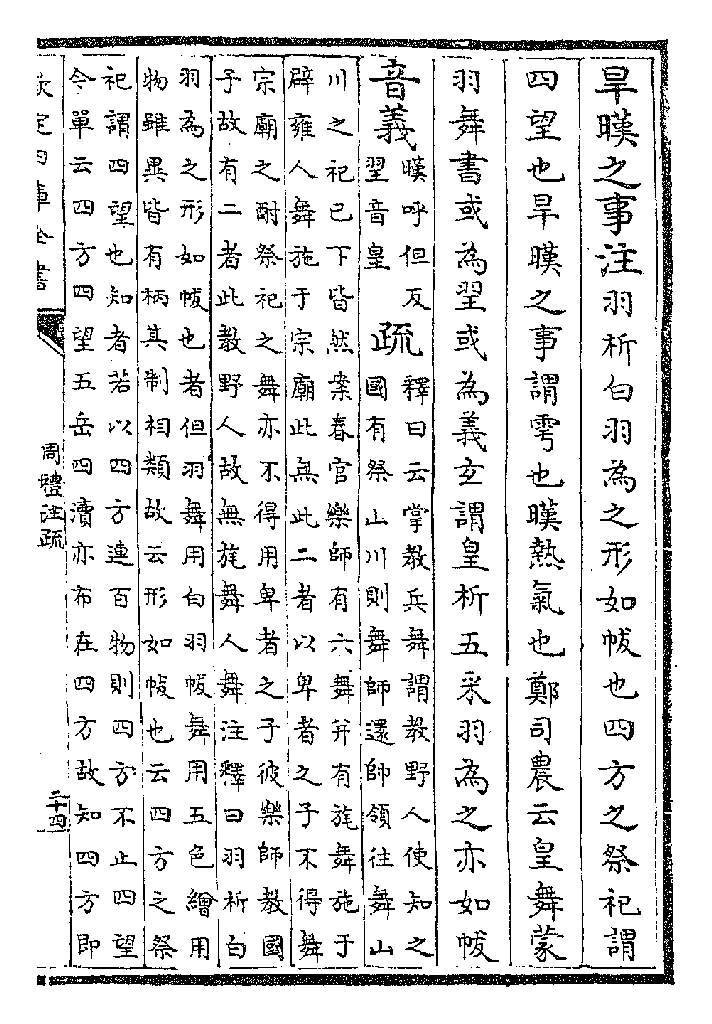 旱暵之事注羽析白羽為之形如帗也四方之祭祀謂
四望也旱暵之事謂雩也暵熱氣也鄭司農云皇舞蒙
羽舞書或為翌或為義玄謂皇析五采羽為之亦如帗
音義
暵呼但反
翌音皇
疏
釋曰云掌教兵舞謂教野人使知之
國有祭山川則舞師還師領往舞山
川之祀已下皆然案春官樂師有六舞并有旄舞施于
辟雍人舞施于宗廟此無此二者以卑者之子不得舞
宗廟之酎祭祀之舞亦不得用卑者之子彼樂師教國
子故有二者此教野人故無旄舞人舞注釋曰羽析白
羽為之形如帗也者但羽舞用白羽帗舞用五色繒用
物雖異皆有柄其制相類故云形如帗也云四方之祭
祀謂四望也知者若以四方連百物則四方不止四望
今單云四方四望五岳四瀆亦布在四方故知四方即
欽定四庫全書
周禮注疏
二十四